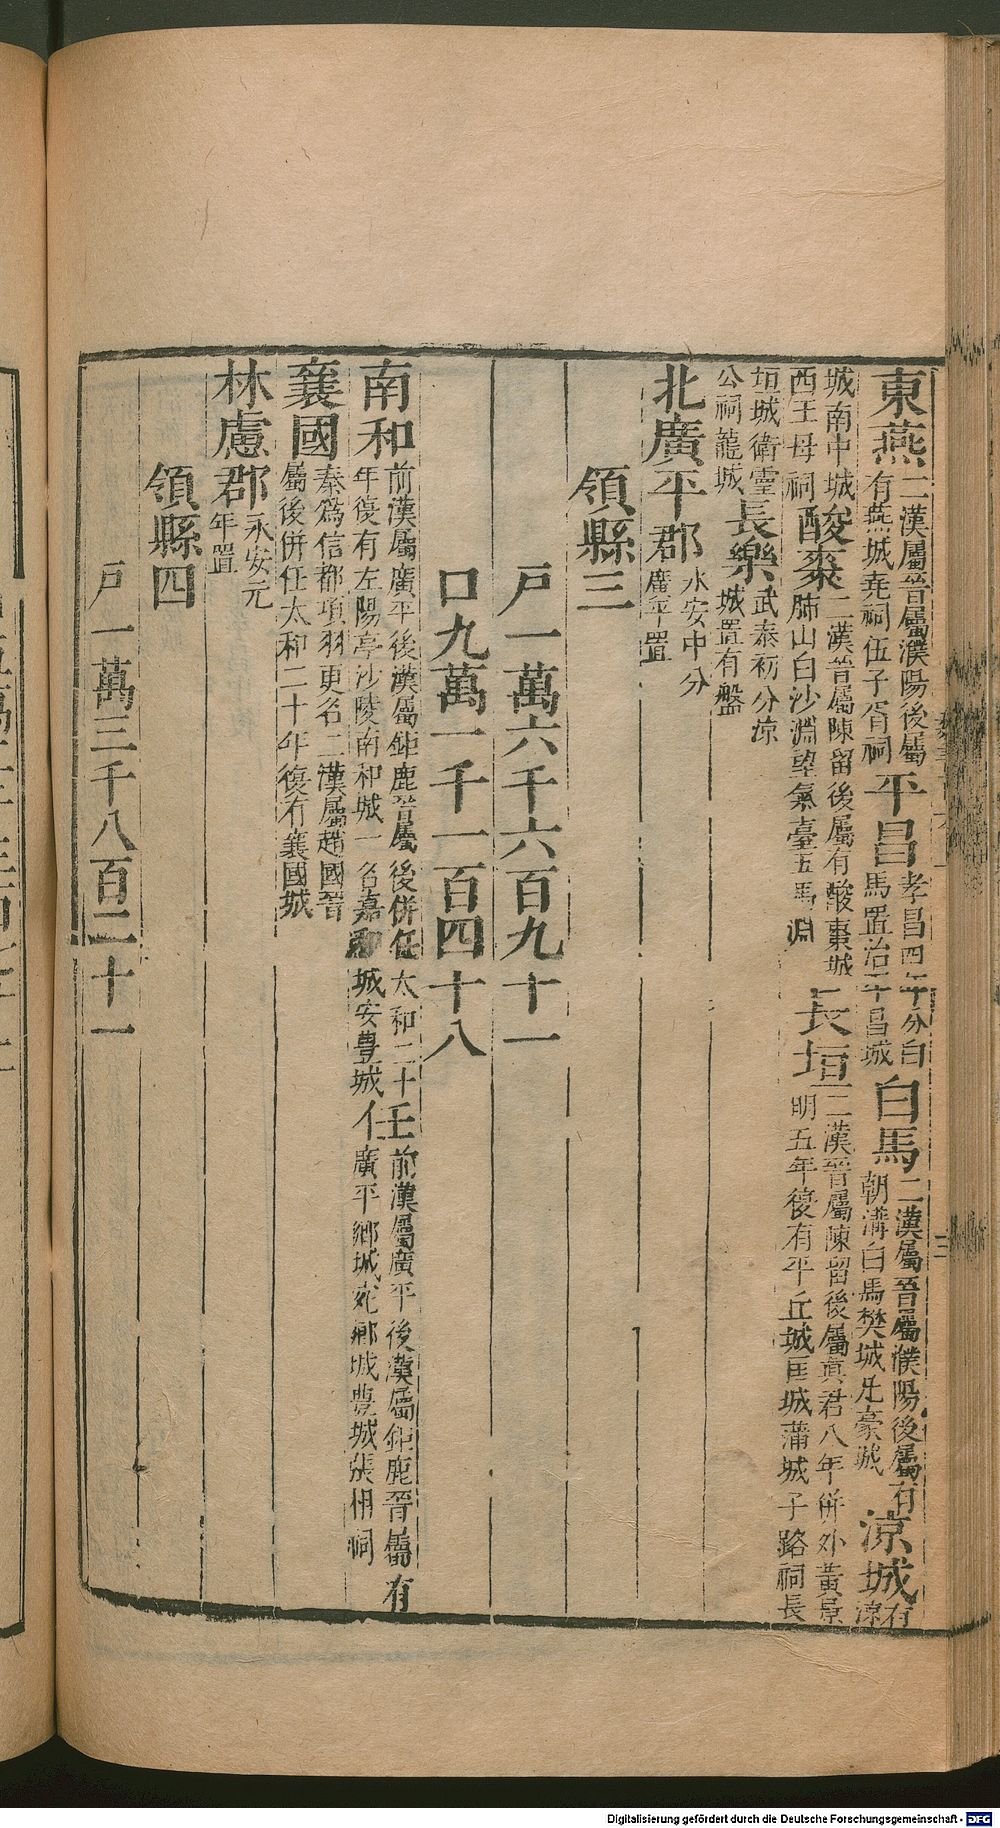 東燕二漢屬晉屬濮陽後屬有燕城堯祠伍子胥祠平昌孝昌四年分白馬置治平昌城白馬二漢屬晉屬濮陽後屬有朝溝白馬樊城豪城涼城有涼
城南中城西王母祠酸棗二漢晉屬陳留後屬有酸棗城肺山白沙淵望氣臺五馬淵長垣二漢晉屬陳留後屬真君八年併外黃景明五年復有平丘城匡城蒲城子路祠長
垣城衛靈公祠龍城長樂武泰初分涼城置有盤
北廣平郡永安中分廣平置
領縣三
戶一萬六千六百九十一
口九萬一千一百四十八
南和前漢屬廣平後漢屬鉅鹿晉屬後併任太和二十年復有左陽亭沙陵南和城一名嘉和城安豊城任前漢屬廣平後漢屬鉅鹿晉屬有廣平鄉城苑鄉城豊城張相祠
襄國秦為信都項羽更名二漢屬趙國晉屬後併任太和二十年復有襄國城
林慮郡永安元年置
領縣四
戶一萬三千八百二十一
Digitalisierung gefördert durch die Deutsche Forschungsgemeinschaft - DFG